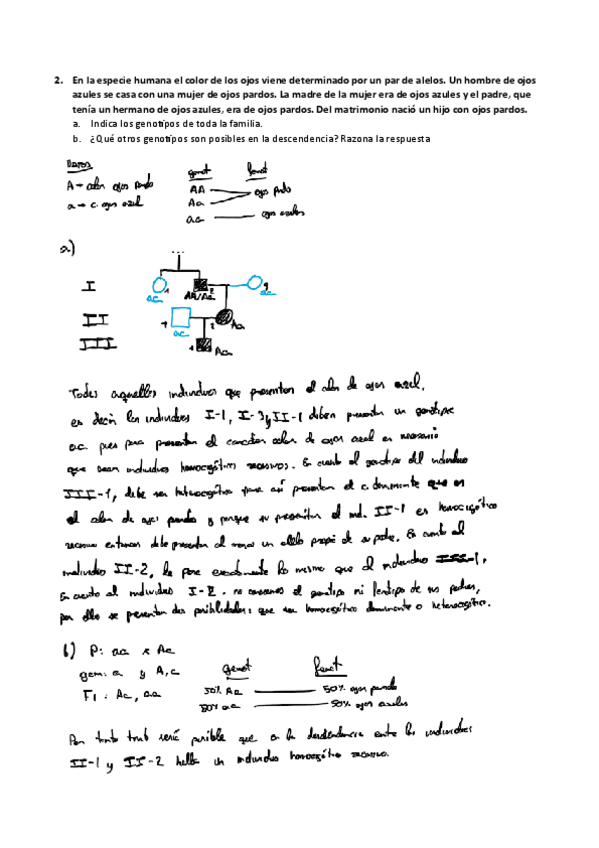 2. En la especie humana el color de los ojos viene determinado por un par de alelos. Un hombre de ojos
azules se casa con una mujer de ojos pardos. La madre de la mujer era de ojos azules y el padre, que
tenía un hermano de ojos azules, era de ojos pardos. Del matrimonio nació un hijo con ojos pardos.
a. Indica los genotipos de toda la familia.
b. ¿Qué otros genotipos son posibles en la descendencia? Razona la respuesta
Datos
A → color ojos pardo
a → c. ojos azul
genot fenot
AA
Aa
ojos pardo
aa
ojos azules
a)
...
I
1
aa
2
AA/Aa
3
aa
II
1
aa
2
Aa
III
1
Aa
Todos aquellos individuos que presentan el color de ojos azul,
es decir los individuos I-1, I-3 y II-1 deben presentar un genotipo
aa pues para presentar el carácter color de ojos azul es necesario
que sean individuos homocigóticos recesivos. En cuanto al genotipo del individuo
III-1, debe ser heterocigótico para así presentar el c. dominante que es
el color de ojos pardo y porque su progenitor el ind. II-1 es homocigótico
recesivo entonces debe presentar al menos un alelo propio de su padre. En cuanto al
individuo II-2, le pasa exactamente lo mismo que al individuo III-1.
En cuanto al individuo I-2. no conocemos el genotipo ni fenotipo de sus padres,
por ello se presentan dos posibilidades: que sea homocigótico dominante o heterocigótico.
b) P: aa x Aa
gam: a y A, a
F1: Aa, aa
genot fenot
50% Aa 50% ojos pardo
50% aa 50% ojos azules
Por tanto sería posible que en la descendencia entre los individuos
II-1 y II-2 un individuo homocigótico recesivo.